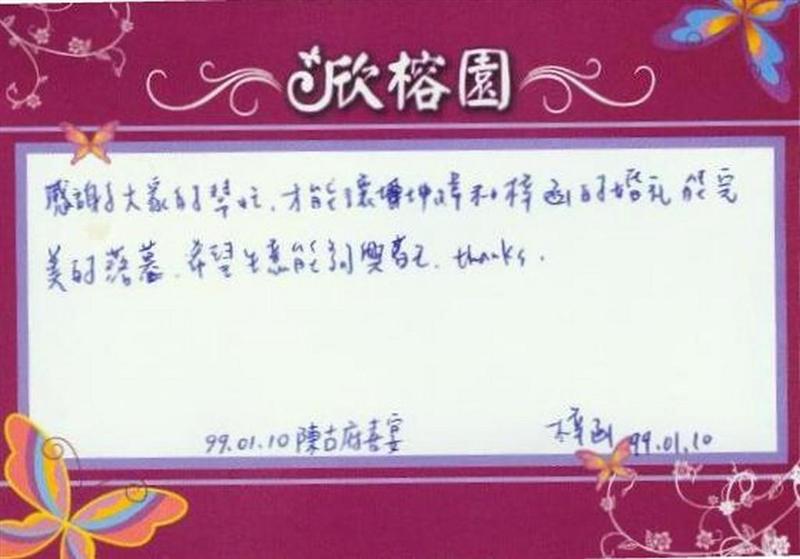 欣榕園
感謝了大家的幫忙,才能讓坤暐和梓函的婚礼能完
美的落幕,希望生意能夠興旺. thanks.
99.01.10 陳古府喜宴
梓函 99.01.10